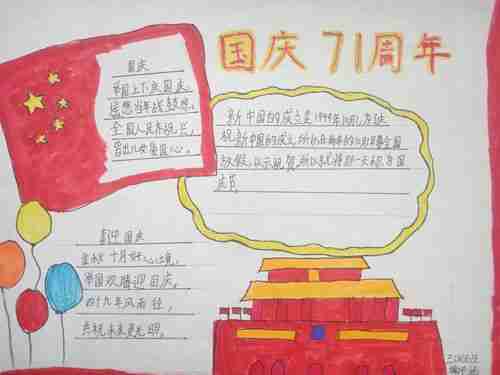 国庆71周年
国庆
举国上下庆国庆,
遥想当年战鼓
全国人民齐祝
喜迎国庆
金秋十月好心境,
举国欢腾迎国庆,
四十九年风雨径,
共祝未来更光明。
新中国的成立是1949年10月1
祝新中国的成立,所以在每年的10月1日是全国
放假,以示祝贺,所以就将那一天称为国
庆节